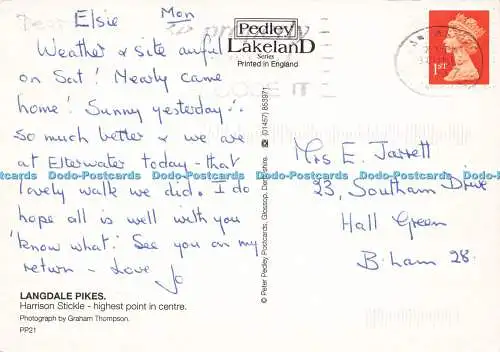 Dear Elsie Mon
Weather & site awful
on Sat! Nearly came
home! Sunny yesterday!
so much better & we are
at Elterwater today - that
lovely walk we did. I do
hope all is well with you
'know what.' See you on my
return - Love Jo
LANGDALE PIKES.
Harrison Stickle - highest point in centre.
Photograph by Graham Thompson.
PP21
Pedley
LakelanD
Series
Printed in England
© Peter Pedley Postcards, Glossop, Derbyshire. ☎ (01457) 853971
1ST
Mrs E. Jarrett
23, Southam Drive
Hall Green
B'ham 28.
Dodo-Postcards Dodo-Postcards Dodo-Postcards Dodo-Postcards Dodo-Postcards